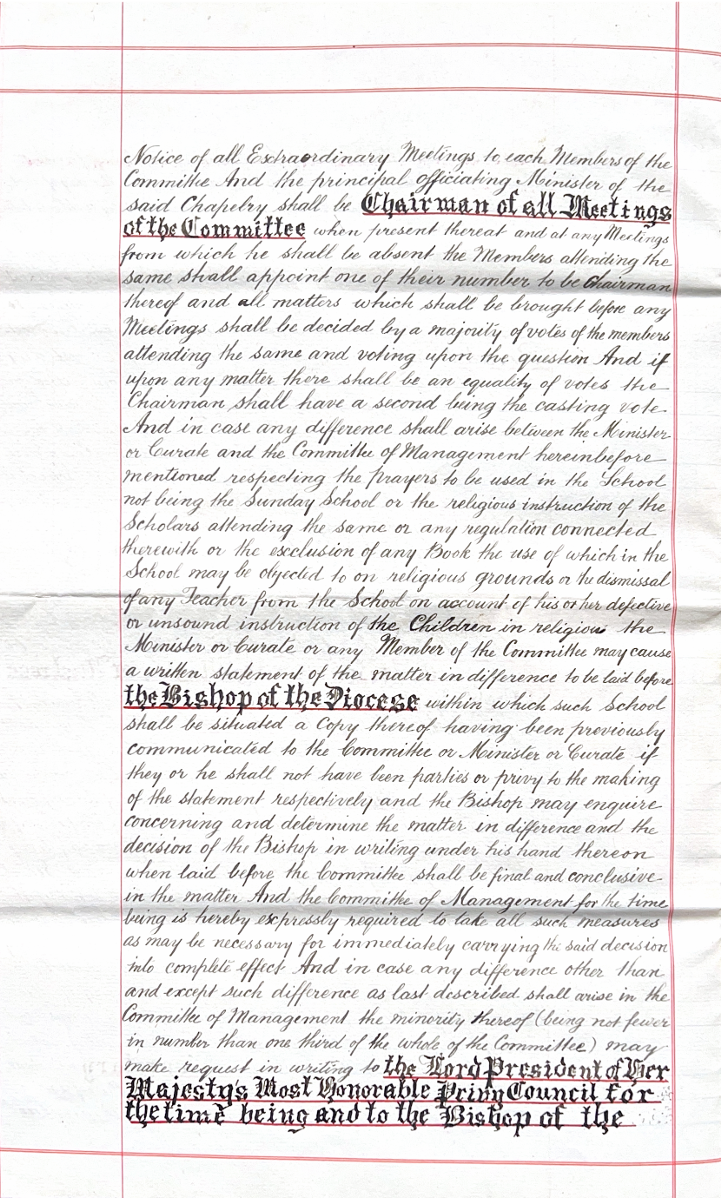 Notice of all Extraordinary Meetings to each Members of the
Committee And the principal officiating Minister of the
said Chapelry shall be Chairman of all Meetings
of the Committee when present thereat and at any Meetings
from which he shall be absent the Members attending the
same shall appoint one of their number to be Chairman
thereof and all matters which shall be brought before any
Meetings shall be decided by a majority of votes of the members
attending the same and voting upon the question And if
upon any matter there shall be an equality of votes the
Chairman shall have a second being the casting vote
And in case any difference shall arise between the Minister
or Curate and the Committee of Management hereinbefore
mentioned respecting the prayers to be used in the School
not being the Sunday School or the religious instruction of the
Scholars attending the same or any regulation connected
therewith or the exclusion of any Book the use of which in the
School may be objected to on religious grounds or the dismissal
of any Teacher from the School on account of his or her defective
or unsound instruction of the Children in religion the
Minister or Curate or any Member of the Committee may cause
a written statement of the matter in difference to be laid before
the Bishop of the Diocese within which such School
shall be situated a Copy thereof having been previously
communicated to the Committee or Minister or Curate if
they or he shall not have been parties or privy to the making
of the statement respectively and the Bishop may enquire
concerning and determine the matter in difference and the
decision of the Bishop in writing under his hand thereon
when laid before the Committee shall be final and conclusive
in the matter And the Committee of Management for the time
being is hereby expressly required to take all such measures
as may be necessary for immediately carrying the said decision
into complete effect And in case any difference other than
and except such difference as last described shall arise in the
Committee of Management the minority thereof (being not fewer
in number than one third of the whole of the Committee) may
make request in writing to the Lord President of Her
Majesty's Most Honorable Privy Council for
the time being and to the Bishop of the